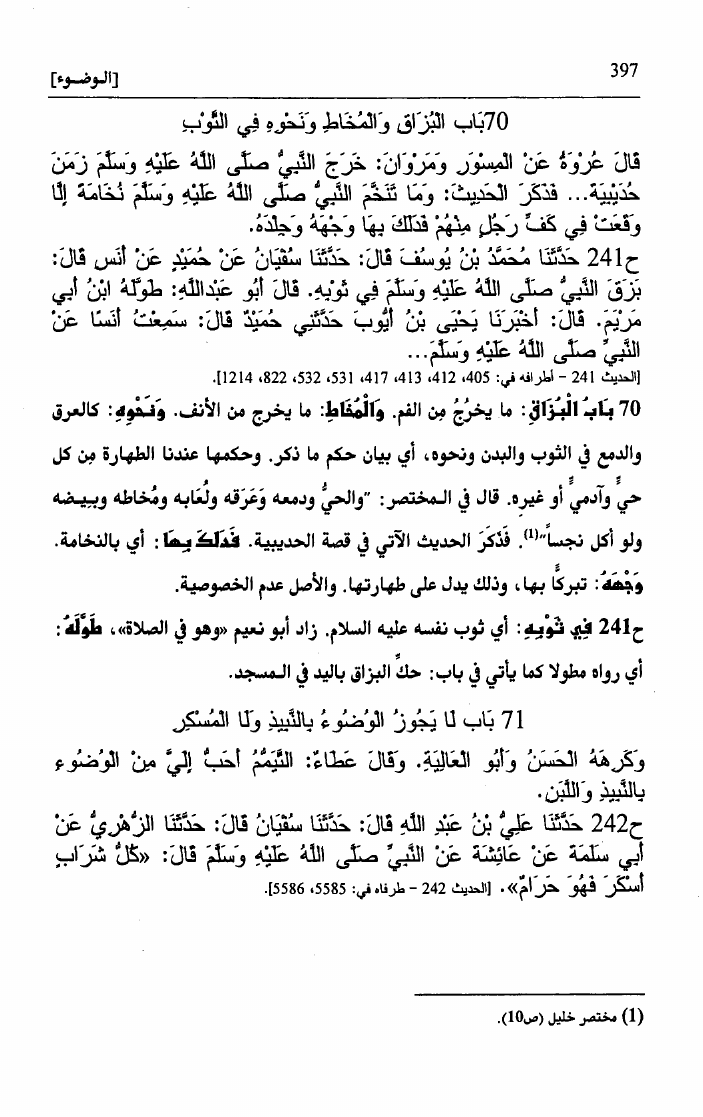 [الـوضـوء]
397
70بَاب الْبُزَاقِ وَالْمُخَاطِ وَنَحْوِهِ فِي الثَّوْبِ
قَالَ عُرْوَةُ عَنْ الْمِسْوَرِ وَمَرْوَانَ: خَرَجَ النَّبِيُّ صلَّى اللهُ عَلَيْهِ وَسَلَّمَ زَمَنَ
حُدَيْبِيَةَ... فَذَكَرَ الْحَدِيثَ: وَمَا تَنَخَّمَ النَّبِيُّ صلَّى اللهُ عَلَيْهِ وَسَلَّمَ نُخَامَةً إِلَّا
وَقَعَتْ فِي كَفِّ رَجُلٍ مِنْهُمْ فَدَلَكَ بِهَا وَجْهَهُ وَجِلْدَهُ.
ح241 حَدَّثَنَا مُحَمَّدُ بْنُ يُوسُفَ قَالَ: حَدَّثَنَا سُفْيَانُ عَنْ حُمَيْدٍ عَنْ أَنَسٍ قَالَ:
بَزَقَ النَّبِيُّ صَلَّى اللهُ عَلَيْهِ وَسَلَّمَ فِي ثَوْبِهِ. قَالَ أَبُو عَبْدِاللهِ: طَوَّلَهُ ابْنُ أَبِي
مَرْيَمَ. قَالَ: أَخْبَرَنَا يَحْيَى بْنُ أَيُّوبَ حَدَّثَنِي حُمَيْدٌ قَالَ: سَمِعْتُ أَنَسًا عَنْ
النَّبِيِّ صَلَّى اللهُ عَلَيْهِ وَسَلَّمَ...
[الحديث 241 - أطرافه في: 405، 412، 413، 417، 531، 532، 822، 1214].
70 بَابُ الْبُزَاقِ: ما يخرُجُ مِن الفم. وَالْمُخَاطِ: ما يخرج من الأنف. وَنَحْوِهِ: كالعرق
والدمع في الثوب والبدن ونحوه، أي بيان حكم ما ذكر. وحكمها عندنا الطهارة مِن كل
حيٍّ وآدميٍّ أو غيره. قال في الـمختصر: "والحيُّ ودمعه وَعَرَقه ولُعَابه ومُخاطه وبـيـضه
ولو أكل نجساً"(1). فَذَكَرَ الحديث الآتي في قصة الحديبية. فَدَلَكَ بِـهَا: أي بالنخامة.
وَجْهَهُ: تبركًا بها، وذلك يدل على طهارتها. والأصل عدم الخصوصية.
ح241 فِي ثَوْبِهِ: أي ثوب نفسه عليه السلام. زاد أبو نعيم «وهو في الصلاة»، طَوَّلَهُ:
أي رواه مطولا كما يأتي في باب: حكِّ البزاق باليد في الـمسجد.
71 بَاب لَا يَجُوزُ الْوُضُوءُ بِالنَّبِيذِ وَلَا الْمُسْكِرِ
وَكَرِهَهُ الْحَسَنُ وَأَبُو الْعَالِيَةِ. وَقَالَ عَطَاءٌ: التَّيَمُّمُ أَحَبُّ إِلَيَّ مِنْ الْوُضُوءِ
بِالنَّبِيذِ وَاللَّبَنِ.
ح242 حَدَّثَنَا عَلِيُّ بْنُ عَبْدِ اللهِ قَالَ: حَدَّثَنَا سُفْيَانُ قَالَ: حَدَّثَنَا الزُّهْرِيُّ عَنْ
أَبِي سَلَمَةَ عَنْ عَائِشَةَ عَنْ النَّبِيِّ صَلَّى اللهُ عَلَيْهِ وَسَلَّمَ قَالَ: «كُلُّ شَرَابٍ
أَسْكَرَ فَهُوَ حَرَامٌ». [الحديث 242 - طرفاه في: 5585، 5586].
(1) مختصر خليل (ص10).